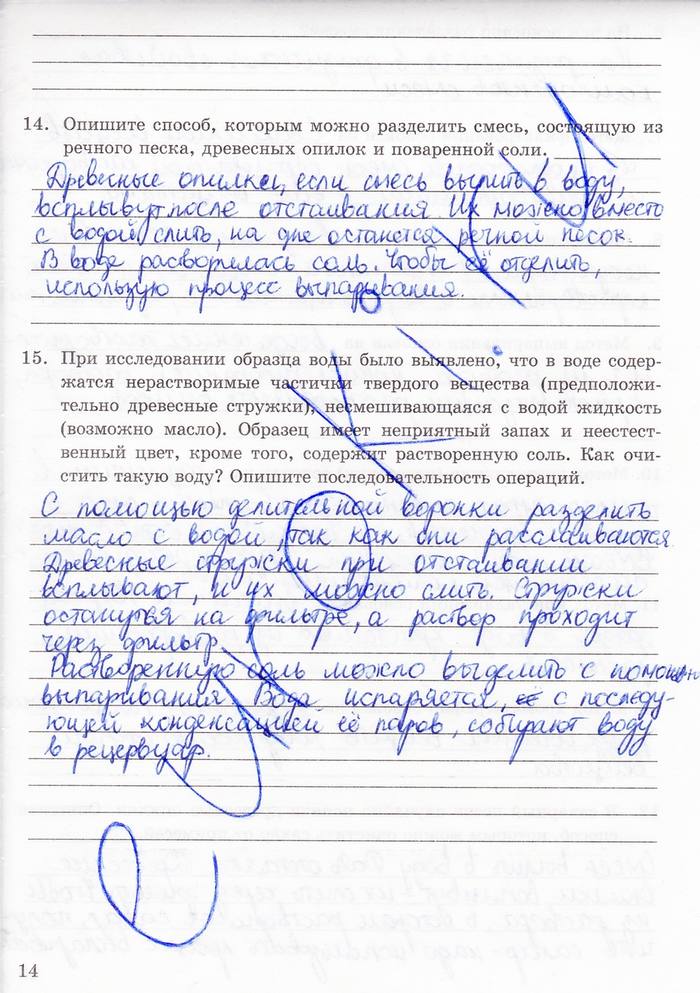 14. Опишите способ, которым можно разделить смесь, состоящую из
речного песка, древесных опилок и поваренной соли.
Древесные опилки, если смесь вылить в воду,
всплывут после отстаивания. Их можно вместо
с водой слить, на дне останется речной песок.
В воде растворилась соль. Чтобы её отделить,
использую процесс выпаривания.
15. При исследовании образца воды было выявлено, что в воде содер-
жатся нерастворимые частички твердого вещества (предположи-
тельно древесные стружки), несмешивающаяся с водой жидкость
(возможно масло). Образец имеет неприятный запах и неестест-
венный цвет, кроме того, содержит растворенную соль. Как очи-
стить такую воду? Опишите последовательность операций.
С помощью делительной воронки разделить
масло с водой, так как они расслаиваются.
Древесные стружки при отстаивании
всплывают, и их можно слить. Стружки
останутся на фильтре, а раствор проходит
через фильтр.
Растворенную соль можно выделить с помощью
выпаривания. Вода испаряется, с последу-
ющей конденсацией её паров, собирают воду
в резервуар.
14